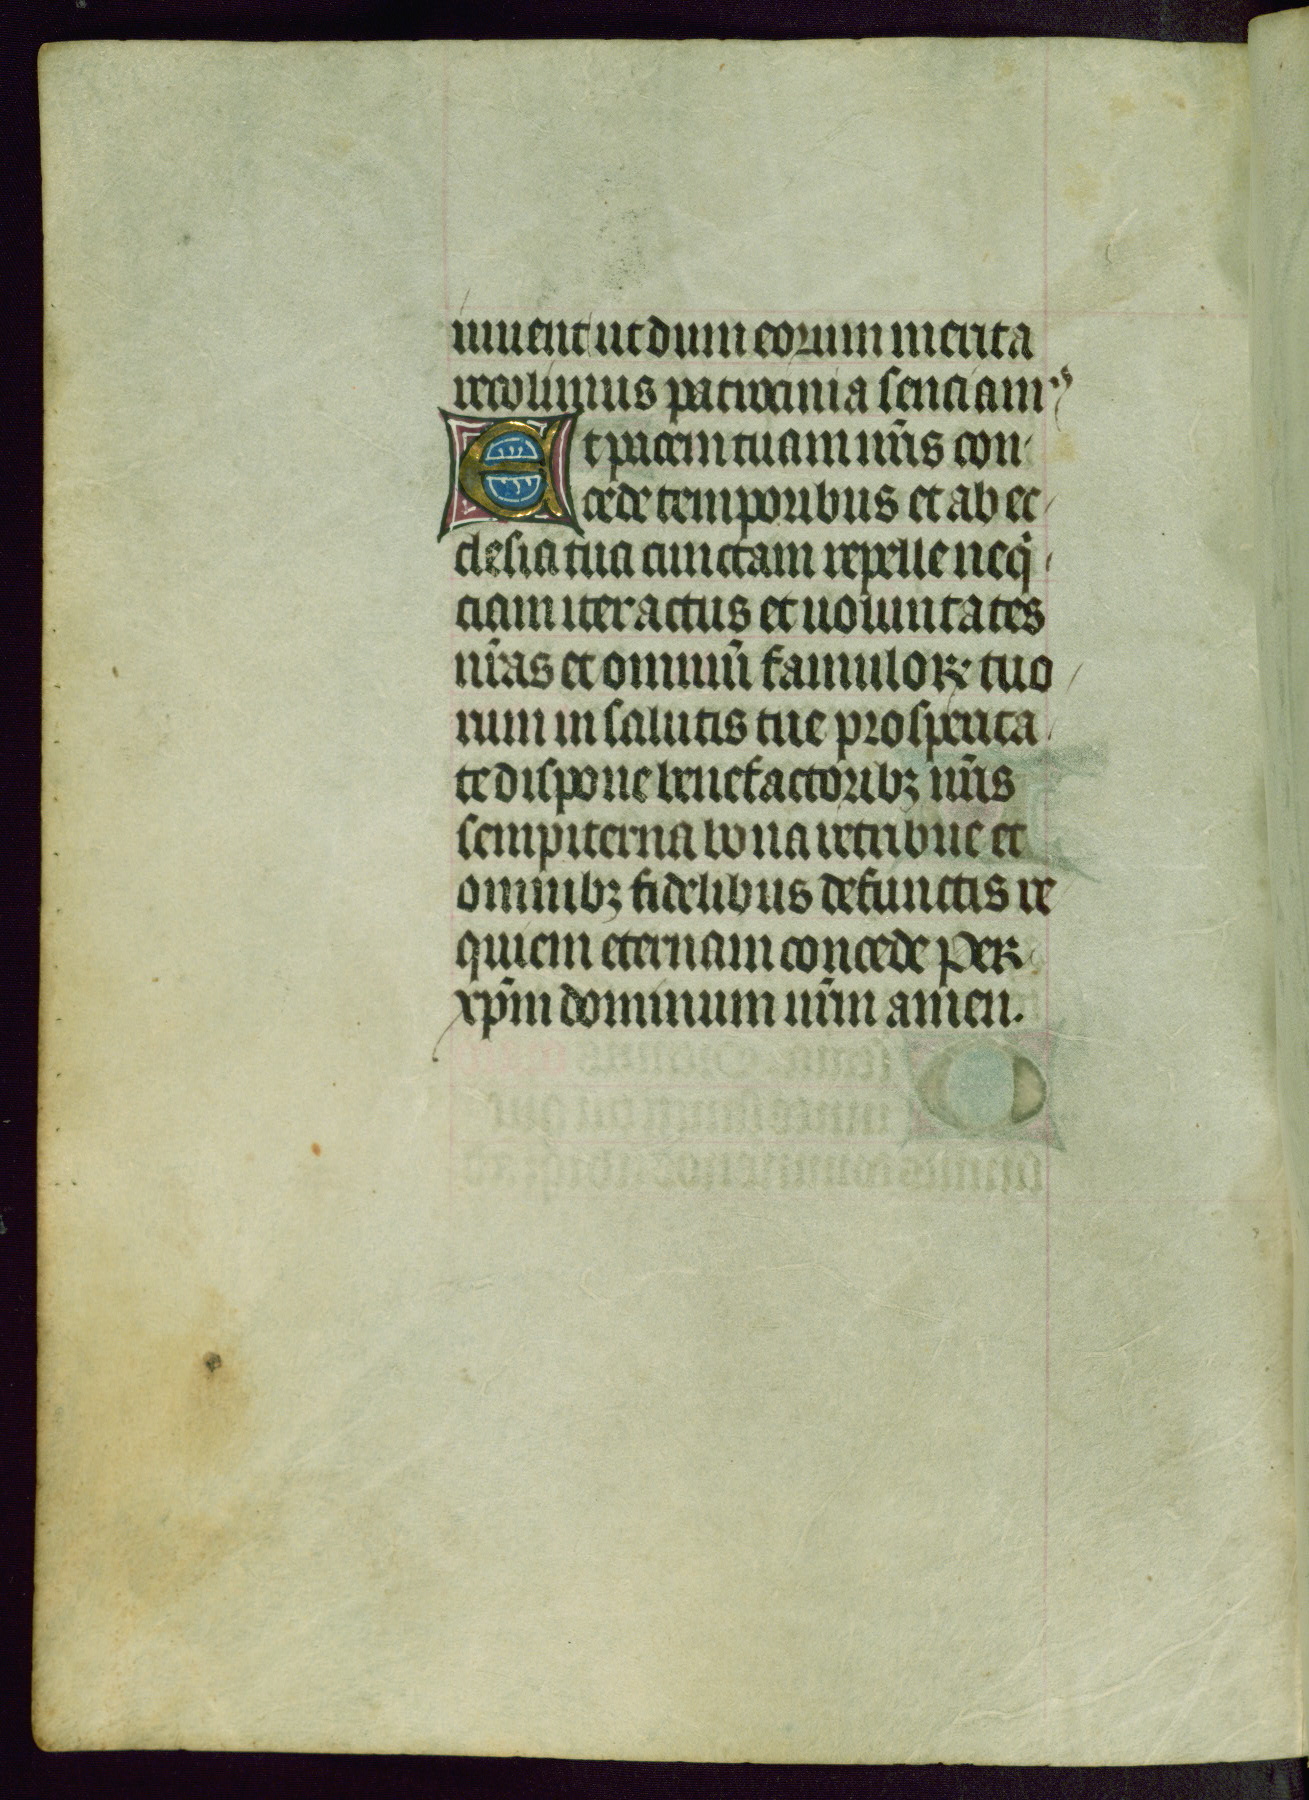 iuuent ut dum eorum merita
recolimus patrocinia senciamꝰ
Et pacem tuam nr̃is con
cede temporibus et ab ec
clesia tua cunctam repelle neq̃
ciam iter actus et uoluntates
nr̃as et omniũ famuloꝝ tuo
rum in salutis tue prosperita
te dispone benefactoribꝫ nr̃is
sempiterna bona retribue et
omnibꝫ fidelibus defunctis re
quiem eternam concede Per
xpm̃ dominum nr̃m amen.